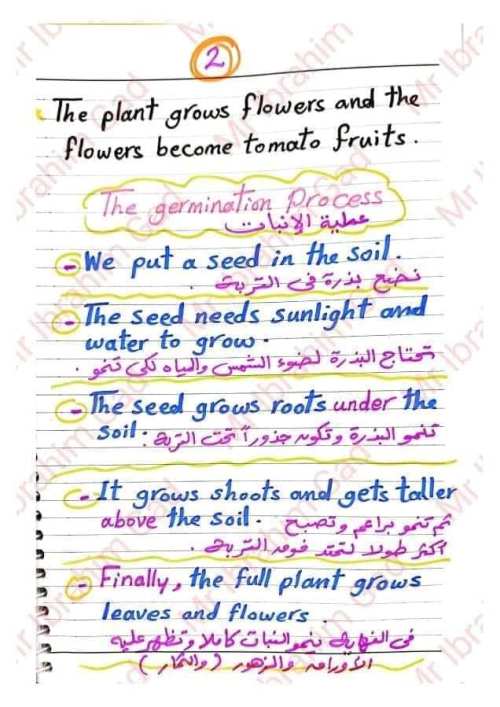 2
The plant grows flowers and the
flowers become tomato fruits.
The germination Process
عملية الإنبات
- We put a seed in the soil.
نضع بذرة فى التربة .
- The seed needs sunlight and
water to grow.
تحتاج البذرة لضوء الشمس والمياه لكى تنمو .
- The seed grows roots under the
soil.
تنمو البذرة وتكون جذوراً تحت التربة .
- It grows shoots and gets taller
above the soil. ثم تنمو براعم وتصبح
أكثر طولا لتمتد فوق التربة .
- Finally, the full plant grows
leaves and flowers .
فى النهاية ينمو النبات كاملا وتظهر عليه
الأوراق والزهور (والثمار)
Mr Ibrahim Gad